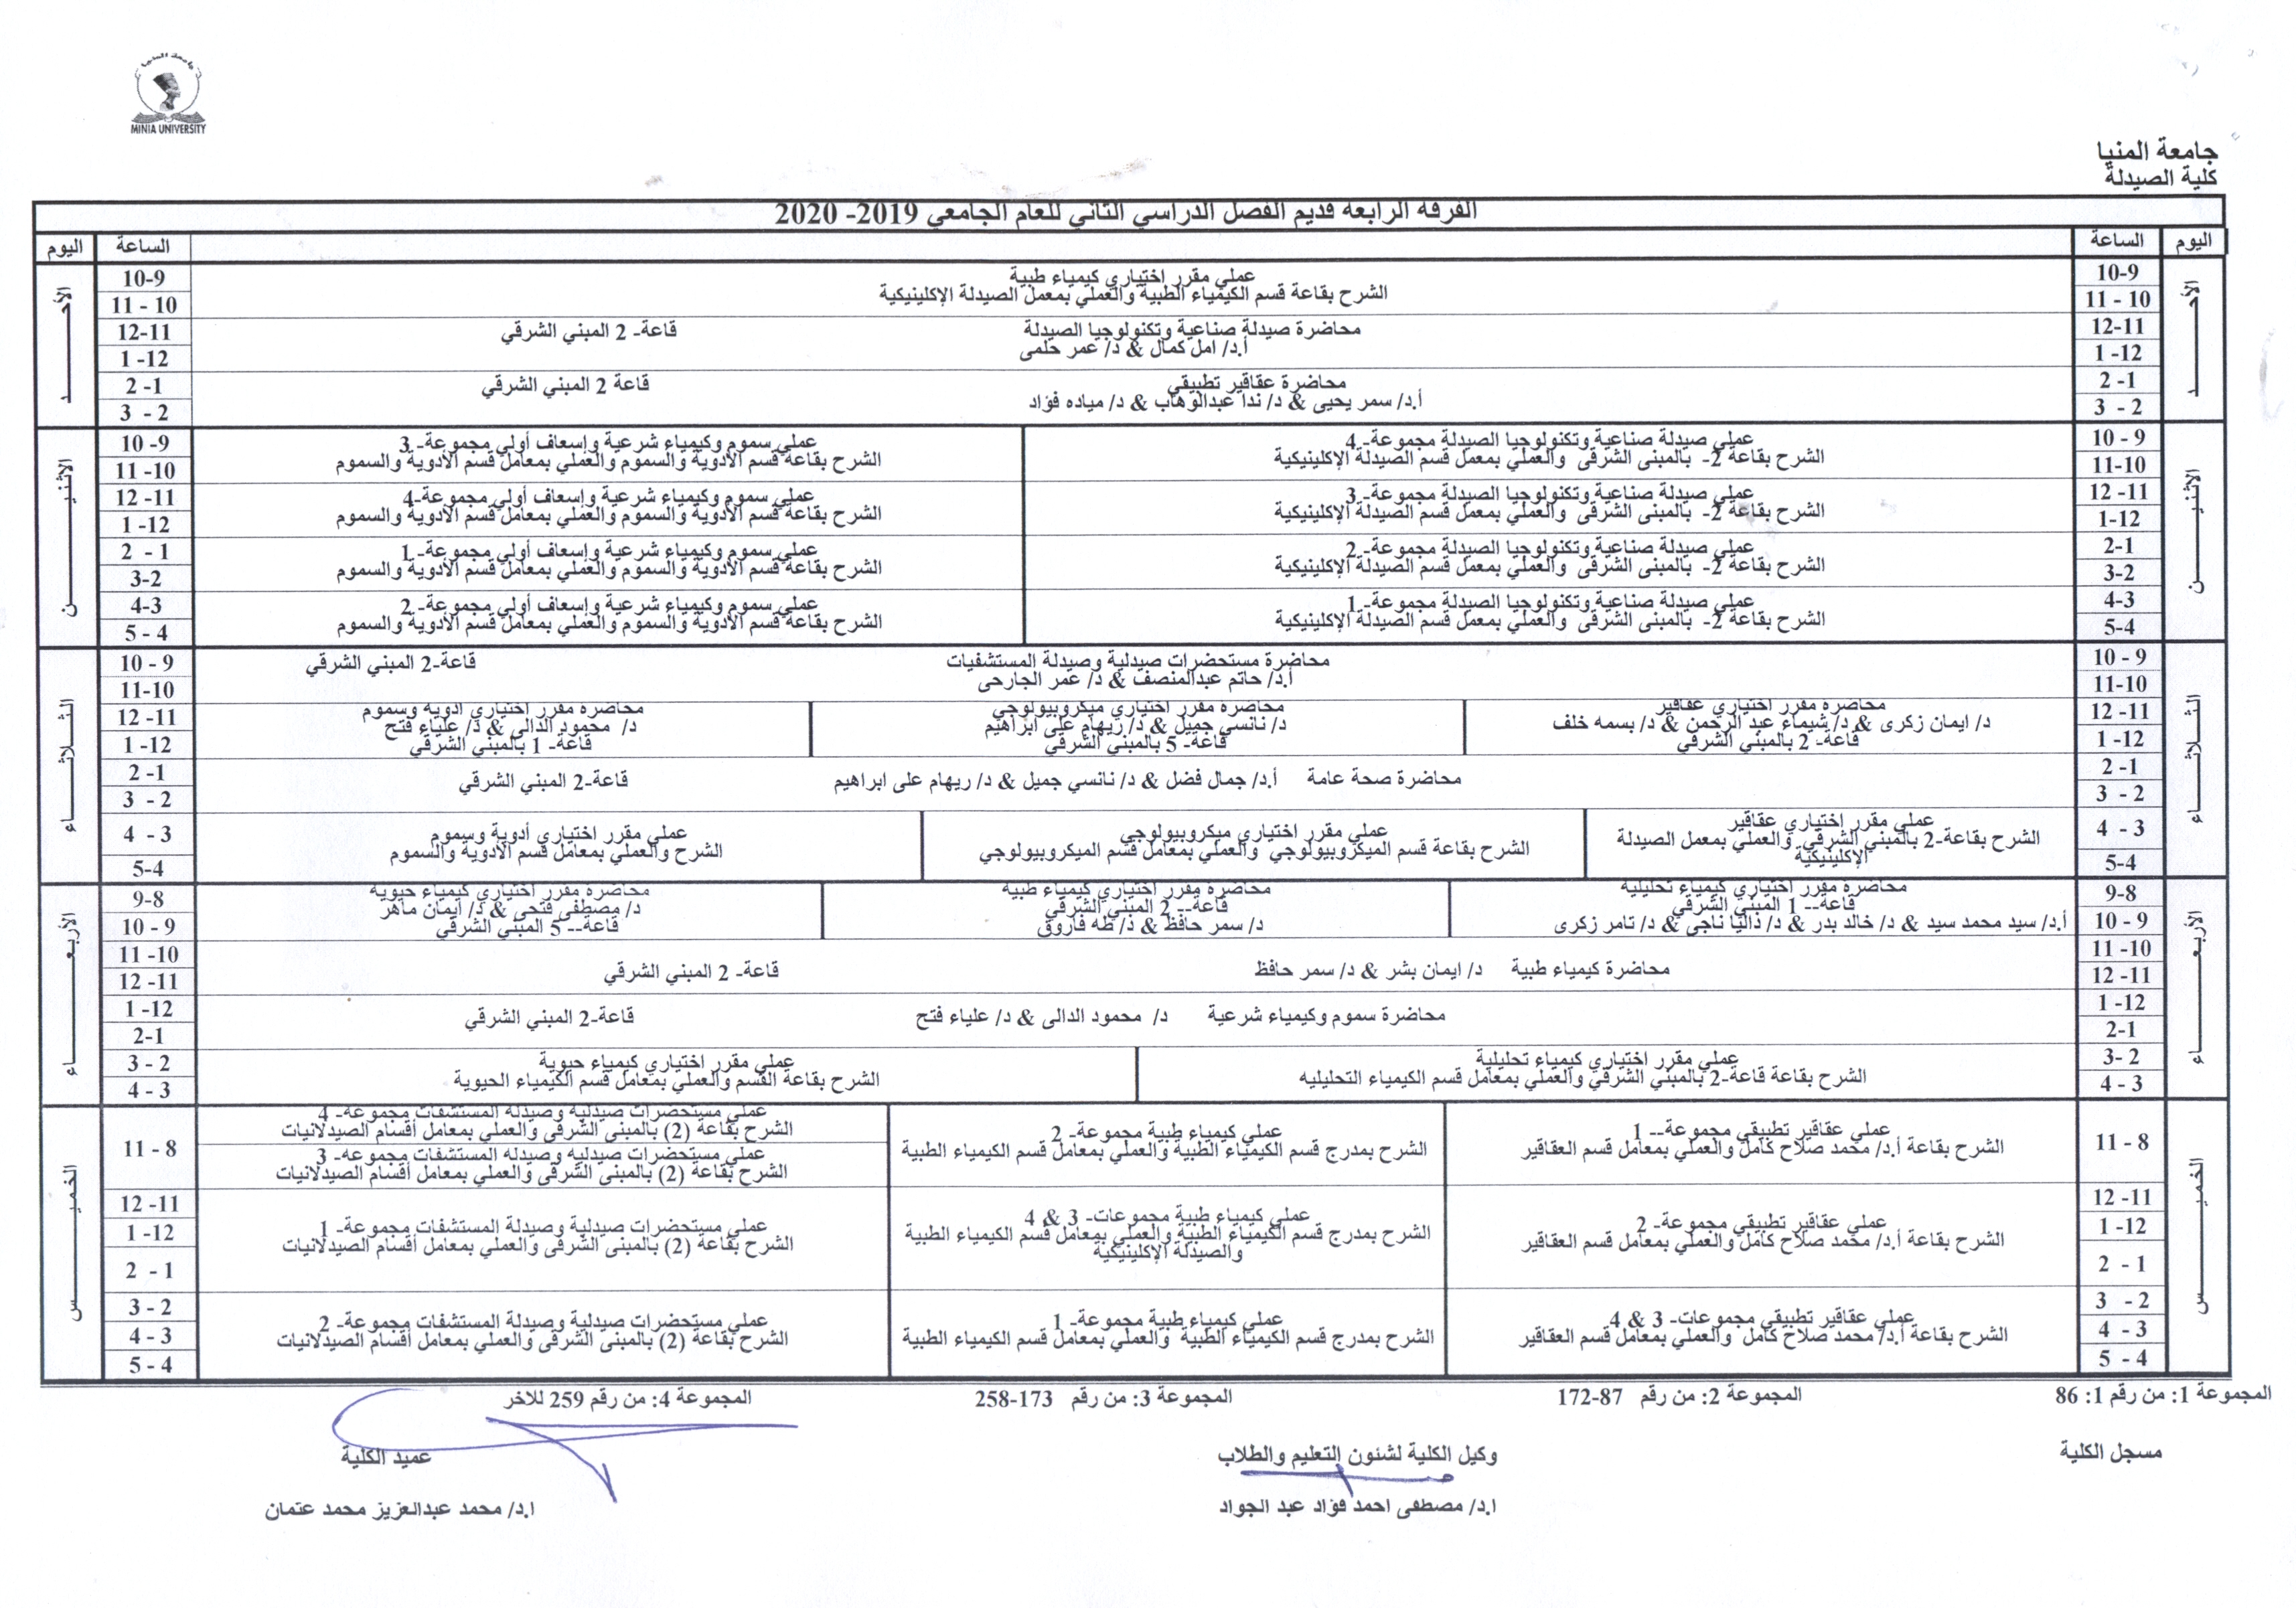 جامعة المنيا
MINIA UNIVERSITY
جامعة المنيا
كلية الصيدلة
الفرقة الرابعة قديم الفصل الدراسي الثاني للعام الجامعي 2019- 2020
اليوم
الساعة
الساعة
اليوم
الأحـــد
10-9
عملي مقرر اختياري كيمياء طبية
10-9
الأحـــد
11 - 10
الشرح بقاعة قسم الكيمياء الطبية والعملي بمعمل الصيدلة الإكلينيكية
11 - 10
12-11
محاضرة صيدلة صناعية وتكنولوجيا الصيدلة قاعة- 2 المبني الشرقي
12-11
1 -12
أ.د/ امل كمال & د/ عمر حلمى
1 -12
2 -1
محاضرة عقاقير تطبيقي قاعة 2 المبني الشرقي
2 -1
3 - 2
أ.د/ سمر يحيى & د/ ندا عبدالوهاب & د/ مياده فؤاد
3 - 2
الاثنيـــن
10 - 9
عملي صيدلة صناعية وتكنولوجيا الصيدلة مجموعة- 4
عملي سموم وكيمياء شرعية وإسعاف أولي مجموعة- 3
10 -9
الاثنيـــن
11-10
الشرح بقاعة 2- بالمبنى الشرقى والعملي بمعمل قسم الصيدلة الإكلينيكية
الشرح بقاعة قسم الأدوية والسموم والعملي بمعامل قسم الأدوية والسموم
11 -10
12 -11
عملي صيدلة صناعية وتكنولوجيا الصيدلة مجموعة- 3
عملي سموم وكيمياء شرعية وإسعاف أولي مجموعة-4
12 -11
1-12
الشرح بقاعة 2- بالمبنى الشرقى والعملي بمعمل قسم الصيدلة الإكلينيكية
الشرح بقاعة قسم الأدوية والسموم والعملي بمعامل قسم الأدوية والسموم
1 -12
2-1
عملي صيدلة صناعية وتكنولوجيا الصيدلة مجموعة- 2
عملي سموم وكيمياء شرعية وإسعاف أولي مجموعة- 1
2 - 1
3-2
الشرح بقاعة 2- بالمبنى الشرقى والعملي بمعمل قسم الصيدلة الإكلينيكية
الشرح بقاعة قسم الأدوية والسموم والعملي بمعامل قسم الأدوية والسموم
3-2
4-3
عملي صيدلة صناعية وتكنولوجيا الصيدلة مجموعة- 1
عملي سموم وكيمياء شرعية وإسعاف أولي مجموعة- 2
4-3
5-4
الشرح بقاعة 2- بالمبنى الشرقى والعملي بمعمل قسم الصيدلة الإكلينيكية
الشرح بقاعة قسم الأدوية والسموم والعملي بمعامل قسم الأدوية والسموم
5 - 4
الثـلاثـــاء
10 - 9
محاضرة مستحضرات صيدلية وصيدلة المستشفيات قاعة-2 المبني الشرقي
10 - 9
الثـلاثـــاء
11-10
أ.د/ حاتم عبدالمنصف & د/ عمر الجارحى
11-10
12 -11
محاضرة مقرر اختياري عقاقير
محاضرة مقرر اختياري ميكروبيولوجي
محاضرة مقرر اختياري ادوية وسموم
12 -11
د/ ايمان زكرى & د/ شيماء عبد الرحمن & د/ بسمه خلف
د/ نانسي جميل & د/ ريهام على ابراهيم
د/ محمود الدالى & د/ علياء فتح
1 -12
قاعة- 2 بالمبني الشرقي
قاعة- 5 بالمبني الشرقي
قاعة- 1 بالمبني الشرقي
1 -12
2 -1
محاضرة صحة عامة أ.د/ جمال فضل & د/ نانسي جميل & د/ ريهام على ابراهيم قاعة-2 المبني الشرقي
2 -1
3 - 2
3 - 2
4 - 3
عملي مقرر اختياري عقاقير
عملي مقرر اختياري ميكروبيولوجي
عملي مقرر اختياري أدوية وسموم
4 - 3
الشرح بقاعة-2 بالمبني الشرقي والعملي بمعمل الصيدلة
الشرح بقاعة قسم الميكروبيولوجي والعملي بمعامل قسم الميكروبيولوجي
الشرح والعملي بمعامل قسم الأدوية والسموم
5-4
الإكلينيكية
5-4
الأربعـــاء
9-8
محاضرة مقرر اختياري كيمياء تحليلية
محاضرة مقرر اختياري كيمياء طبية
محاضرة مقرر اختياري كيمياء حيوية
9-8
الأربعـــاء
قاعة-- 1 المبني الشرقي
قاعة-- 2 المبني الشرقي
د/ مصطفى فتحى & د/ ايمان ماهر
10 - 9
أ.د/ سيد محمد سيد & د/ خالد بدر & د/ داليا ناجى & د/ تامر زكرى
د/ سمر حافظ & د/ طه فاروق
قاعة-- 5 المبني الشرقي
10 - 9
11 -10
محاضرة كيمياء طبية د/ ايمان بشر & د/ سمر حافظ قاعة- 2 المبني الشرقي
11 -10
12 -11
12 -11
1 -12
محاضرة سموم وكيمياء شرعية د/ محمود الدالى & د/ علياء فتح قاعة-2 المبني الشرقي
1 -12
2-1
2-1
3- 2
عملي مقرر اختياري كيمياء تحليلية
عملي مقرر اختياري كيمياء حيوية
3 - 2
4 - 3
الشرح بقاعة قاعة-2 بالمبني الشرقي والعملي بمعامل قسم الكيمياء التحليليه
الشرح بقاعة القسم والعملي بمعامل قسم الكيمياء الحيوية
4 - 3
الخميـــس
11 - 8
عملي عقاقير تطبيقي مجموعة-- 1
الشرح بقاعة أ.د/ محمد صلاح كامل والعملي بمعامل قسم العقاقير
عملي كيمياء طبية مجموعة- 2
الشرح بمدرج قسم الكيمياء الطبية والعملي بمعامل قسم الكيمياء الطبية
عملي مستحضرات صيدلية وصيدلة المستشفات مجموعة- 4
الشرح بقاعة (2) بالمبنى الشرقى والعملي بمعامل أقسام الصيدلانيات
عملي مستحضرات صيدلية وصيدلة المستشفات مجموعة- 3
الشرح بقاعة (2) بالمبنى الشرقى والعملي بمعامل أقسام الصيدلانيات
11 - 8
الخميـــس
12 -11
1 -12
2 - 1
عملي عقاقير تطبيقي مجموعة- 2
الشرح بقاعة أ.د/ محمد صلاح كامل والعملي بمعامل قسم العقاقير
عملي كيمياء طبية مجموعات- 3 & 4
الشرح بمدرج قسم الكيمياء الطبية والعملي بمعامل قسم الكيمياء الطبية
والصيدلة الإكلينيكية
عملي مستحضرات صيدلية وصيدلة المستشفات مجموعة- 1
الشرح بقاعة (2) بالمبنى الشرقى والعملي بمعامل أقسام الصيدلانيات
12 -11
1 -12
2 - 1
3 - 2
4 - 3
5 - 4
عملي عقاقير تطبيقي مجموعات- 3 & 4
الشرح بقاعة أ.د/ محمد صلاح كامل والعملي بمعامل قسم العقاقير
عملي كيمياء طبية مجموعة- 1
الشرح بمدرج قسم الكيمياء الطبية والعملي بمعامل قسم الكيمياء الطبية
عملي مستحضرات صيدلية وصيدلة المستشفات مجموعة- 2
الشرح بقاعة (2) بالمبنى الشرقى والعملي بمعامل أقسام الصيدلانيات
3 - 2
4 - 3
5 - 4
المجموعة 1: من رقم 1: 86 المجموعة 2: من رقم 87-172 المجموعة 3: من رقم 173-258 المجموعة 4: من رقم 259 للاخر
مسجل الكلية وكيل الكلية لشئون التعليم والطلاب عميد الكلية
ا.د/ مصطفى احمد فؤاد عبد الجواد ا.د/ محمد عبدالعزيز محمد عتمان